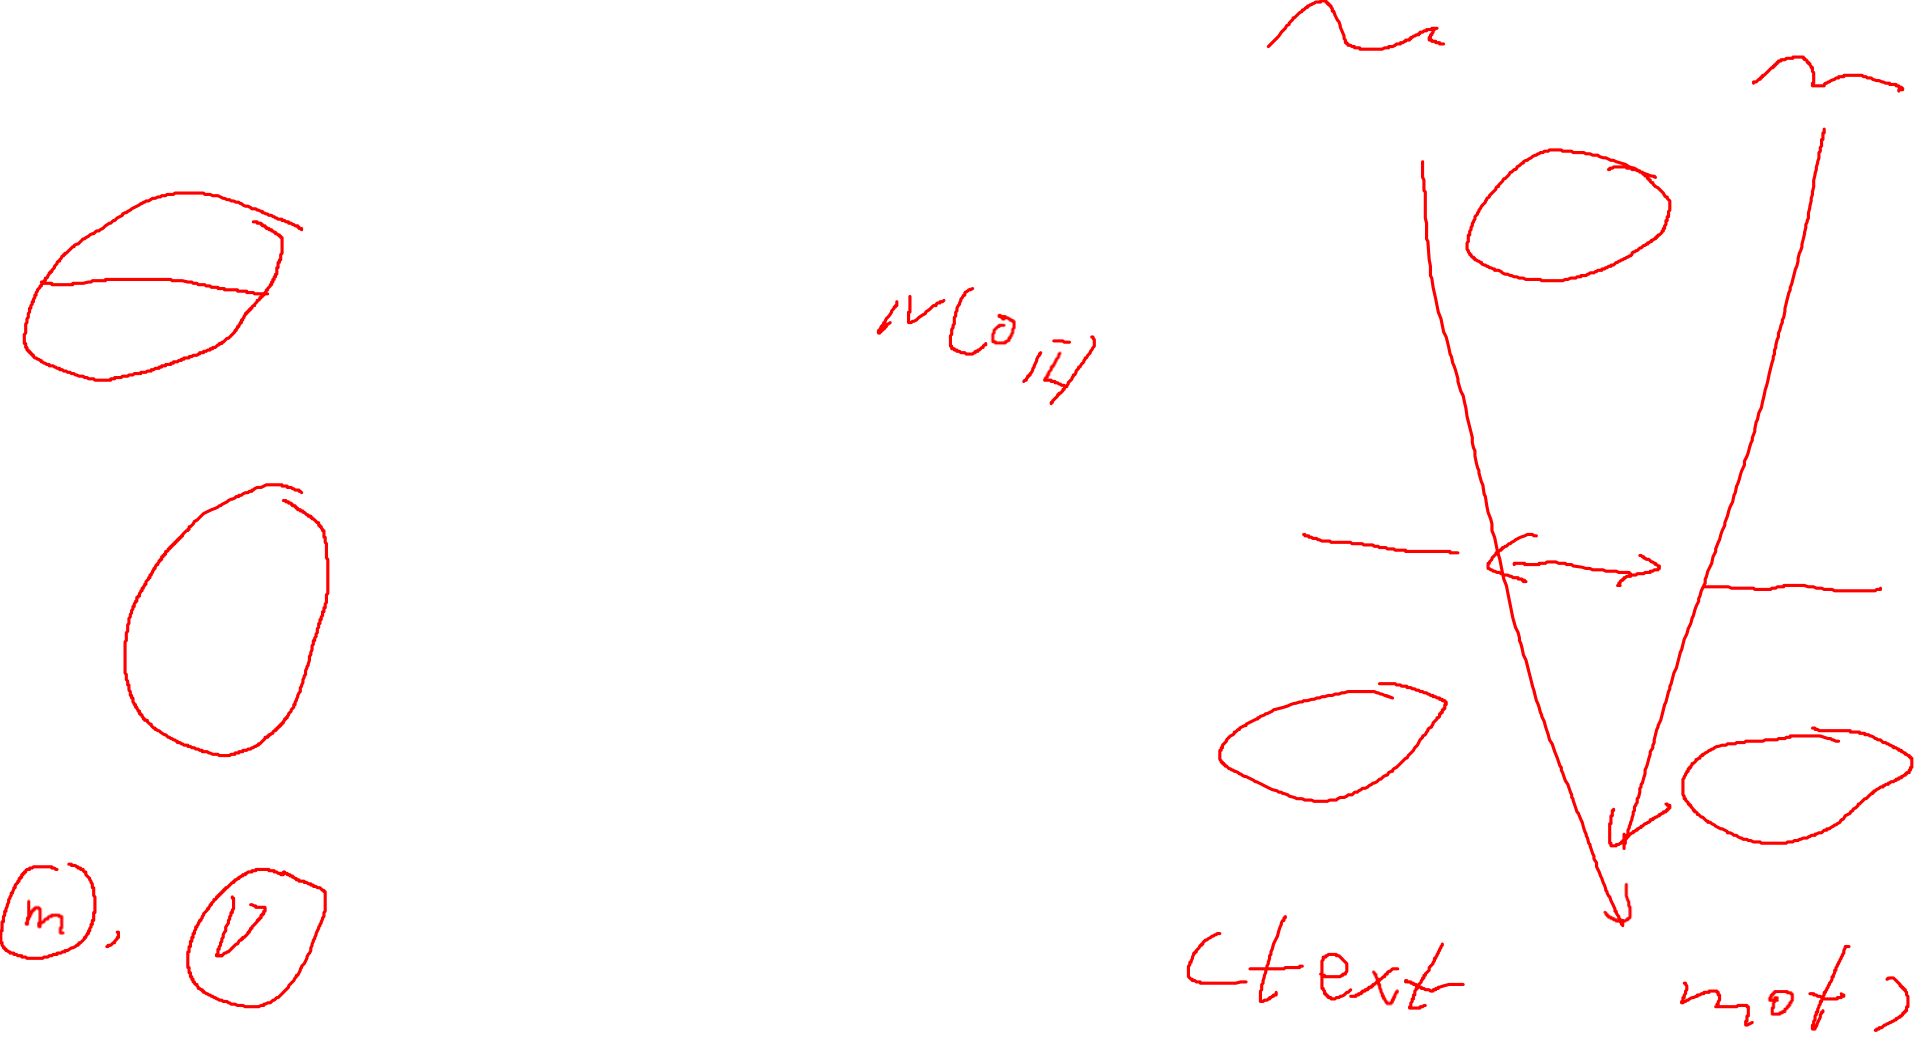 N(0,1)
m, V
(text mot)